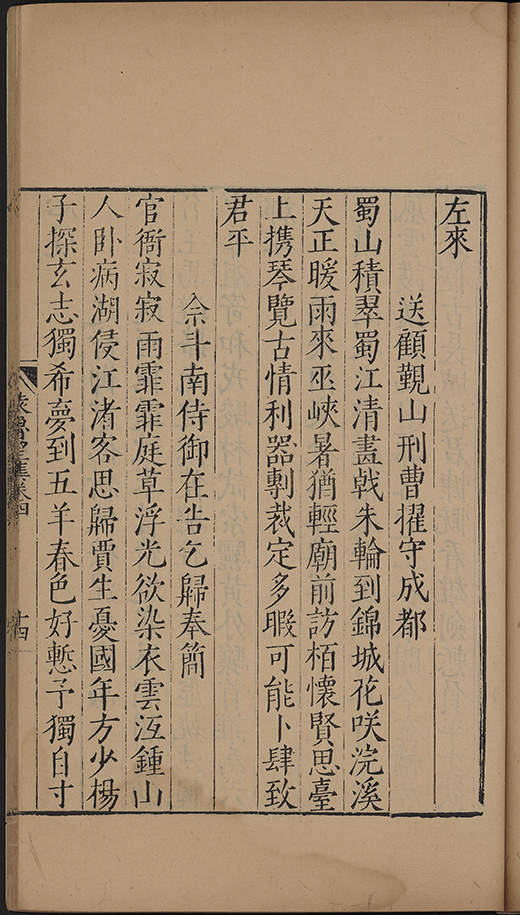 左來
送顧觀山刑曹擢守成都
蜀山積翠蜀江清畫戟朱輪到錦城花咲浣溪
天正暖雨來巫峽暑猶輕廟前訪栢懷賢思臺
上携琴覽古情利器剸裁定多暇可能卜肆致
君平
佘斗南侍御在告乞歸奉簡
官衙寂寂雨霏霏庭草浮光欲染衣雲沍鍾山
人卧病湖侵江渚客思歸賈生憂國年方少楊
子探玄志獨希夢到五羊春色好慙予獨自寸
卷四
十四